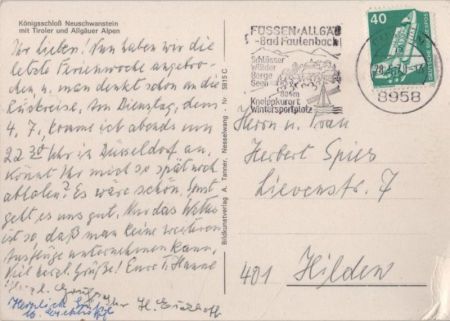 Königsschloß Neuschwanstein
mit Tiroler und Allgäuer Alpen
Ihr Lieben! Nun haben wir die
letzte Ferienwoche angebro-
chen, u. man denkt schon an die
Rückreise. Am Dienstag, dem
4. 7., komme ich abends um
22 30 Uhr in Düsseldorf an.
Könnt Ihr mich so spät noch
abholen? Es wäre schön. Sonst
geht es uns gut. Nur das Wetter
ist so, daß man keine weiteren
Ausflüge unternehmen kann.
Viel herzl. Grüße! Eure Hanne
Herzlich
Bildkunstverlag A. Tanner, Nesselwang - Nr. 5815 C
FÜSSEN-ALLGÄU
-Bad Faulenbach
Schlösser
Wälder
Berge
Seen
Kneippkurort
Wintersportplatz
40
8958
Herrn u. Frau
Herbert Spies
Lievenstr. 7
401 Hilden